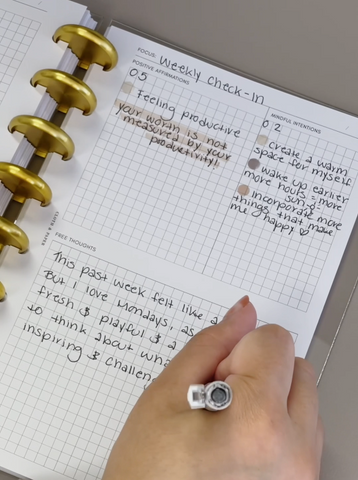 FOCUS: Weekly Check-In
POSITIVE AFFIRMATIONS
05
Feeling productive
your worth is not
measured by your
productivity!
MINDFUL INTENTIONS
02
create a warm
space for myself
wake up earlier
more hours = more
sun
incorporate more
things that make
me happy ♡
FREE THOUGHTS
This past week felt like a
But I love Mondays, as
fresh & playful & a
to think about wha
inspiring & challen